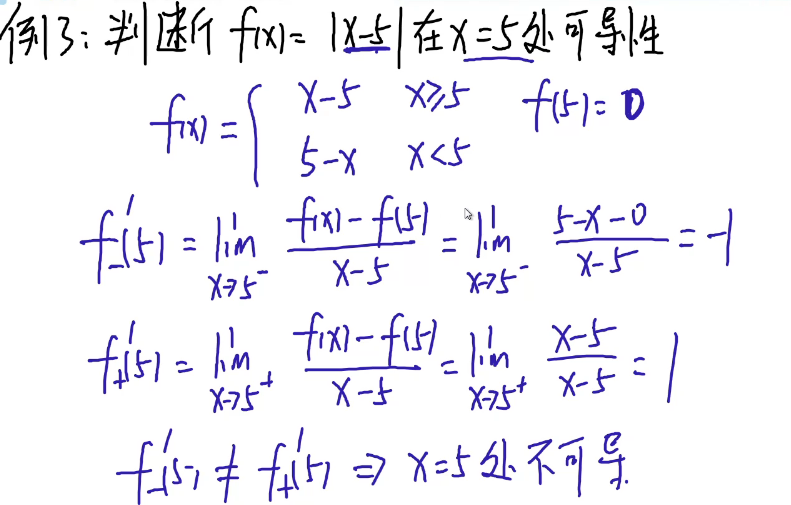 例3：判断 f(x)= |x-5| 在x=5处可导性
f(x) = { x-5 x≥5 f(5)=0
5-x x<5
f₋′(5) = lim x→5⁻ (f(x)-f(5))/(x-5) = lim x→5⁻ (5-x-0)/(x-5) = -1
f₊′(5) = lim x→5⁺ (f(x)-f(5))/(x-5) = lim x→5⁺ (x-5)/(x-5) = 1
f₋′(5) ≠ f₊′(5) ⇒ x=5处不可导.